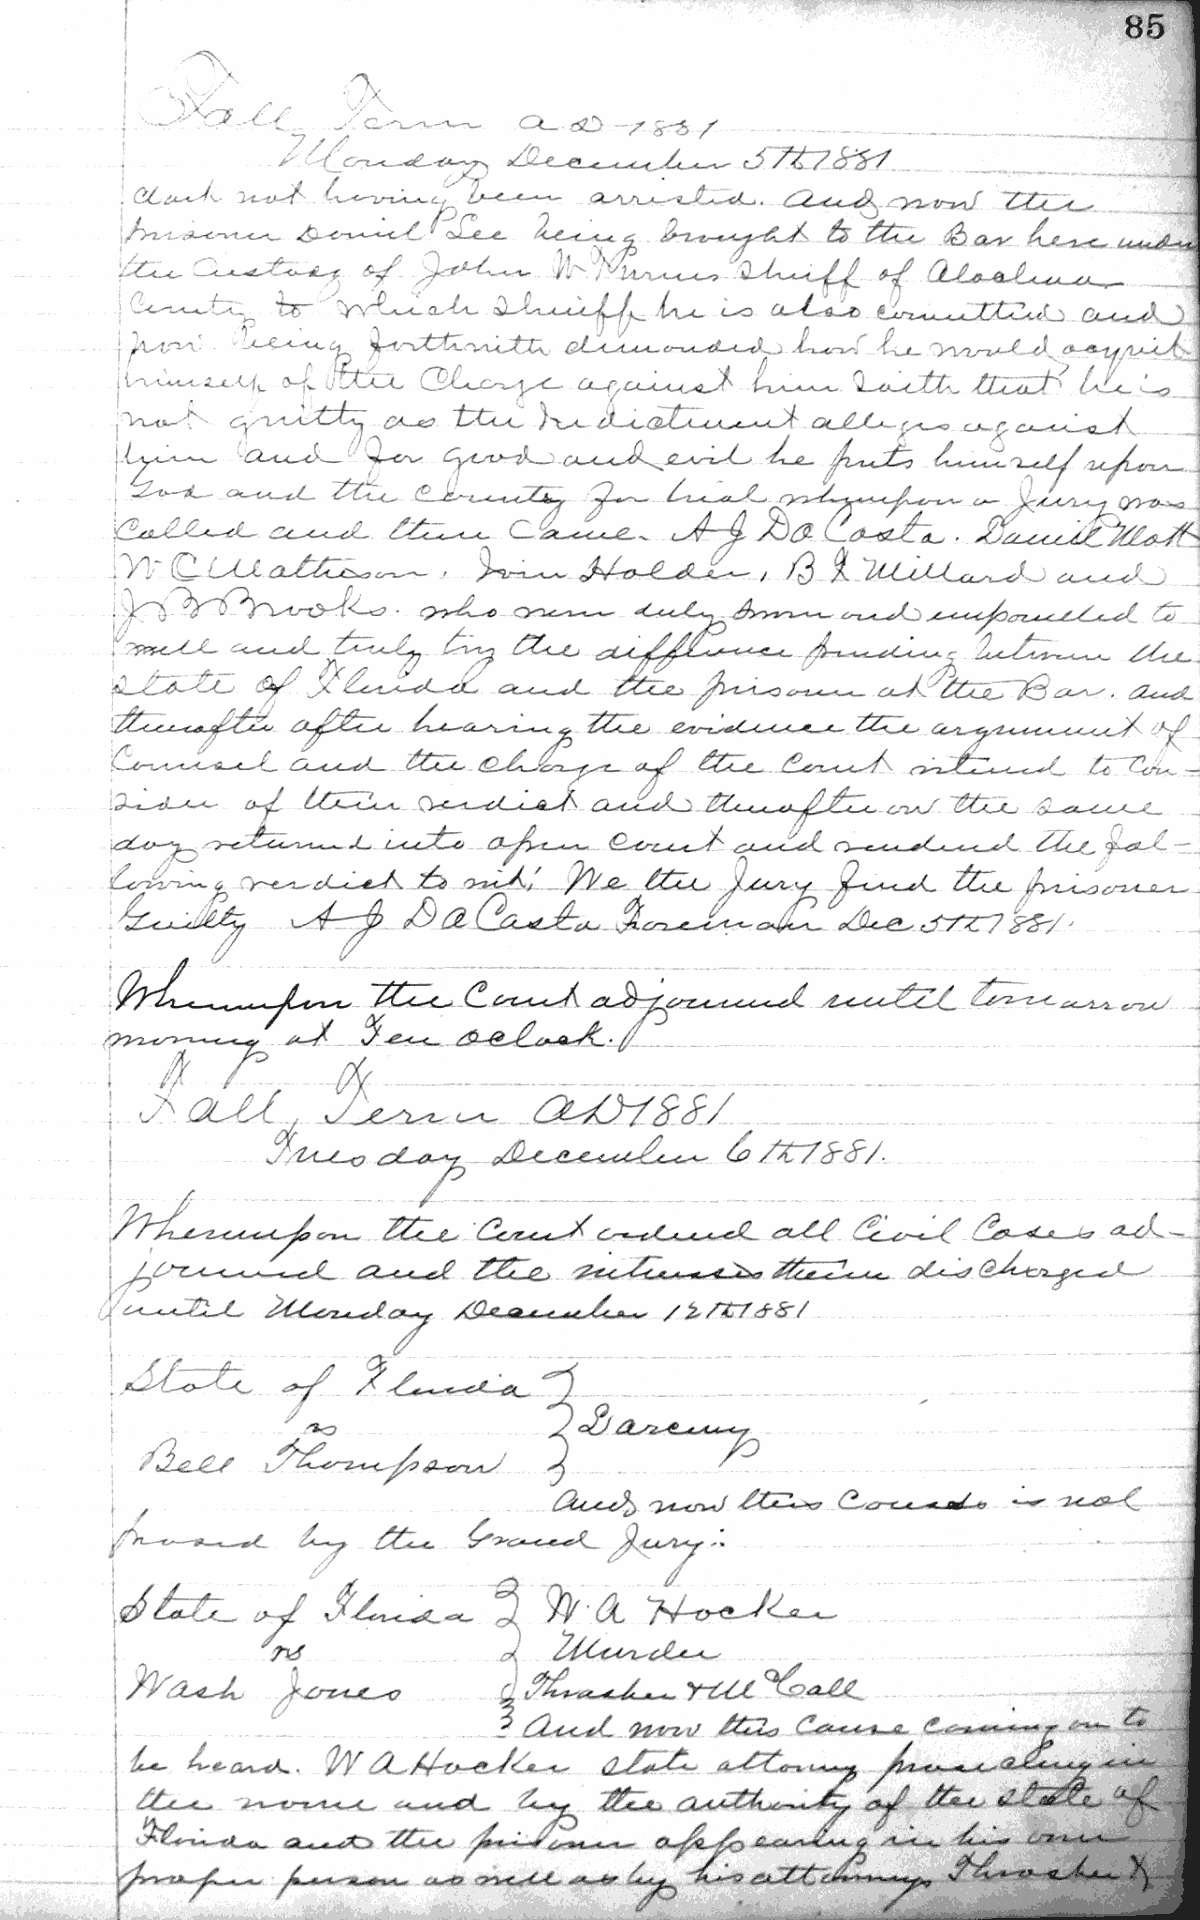 85
Fall Term AD 1881
Monday December 5th 1881
Clark not having been arrested. And now the
prisoner Daniel Lee being brought to the Bar here under
the Custody of John W Turner Sheriff of Alachua
County to which Sheriff he is also committed and
now being forthwith demanded how he would acquit
himself of the Charge against him Saith that he is
not guilty as the Indictment alleges against
him and for good and evil he puts himself upon
God and the County for trial whereupon a Jury was
Called and then Came. A J Da Costa. Daniel Mott
W C Mathison, Irvin Holder, B F Millard and
J B Brooks. who were duly sworn and empanelled to
well and truly try the difference pending between the
State of Florida and the prisoner at the Bar. and
thereafter after hearing the evidence the argument of
Counsel and the charge of the Court retired to Con-
sider of their verdict and thereafter on the same
day returned into open Court and rendered the fol-
lowing verdict to wit: We the Jury find the prisoner
Guilty A J Da Costa Foreman Dec 5th 1881.
Whereupon the Court adjourned until tomorrow
morning at Ten oclock.
Fall Term AD 1881
Tuesday December 6th 1881.
Whereupon the Court ordered all Civil Cases ad-
journed and the witnesses therein discharged
until Monday December 12th 1881
State of Florida
vs Larceny
Bell Thompson
And now this Cause is nol
prosed by the Grand Jury:
State of Florida W. A Hocker
vs Murder
Wash Jones Thrasher & McCall
And now this Cause coming on to
be heard. W A Hocker State attorney prosecuting in
the name and by the authority of the State of
Florida and the prisoner appearing in his own
proper person as well as by his attorneys Thrasher &